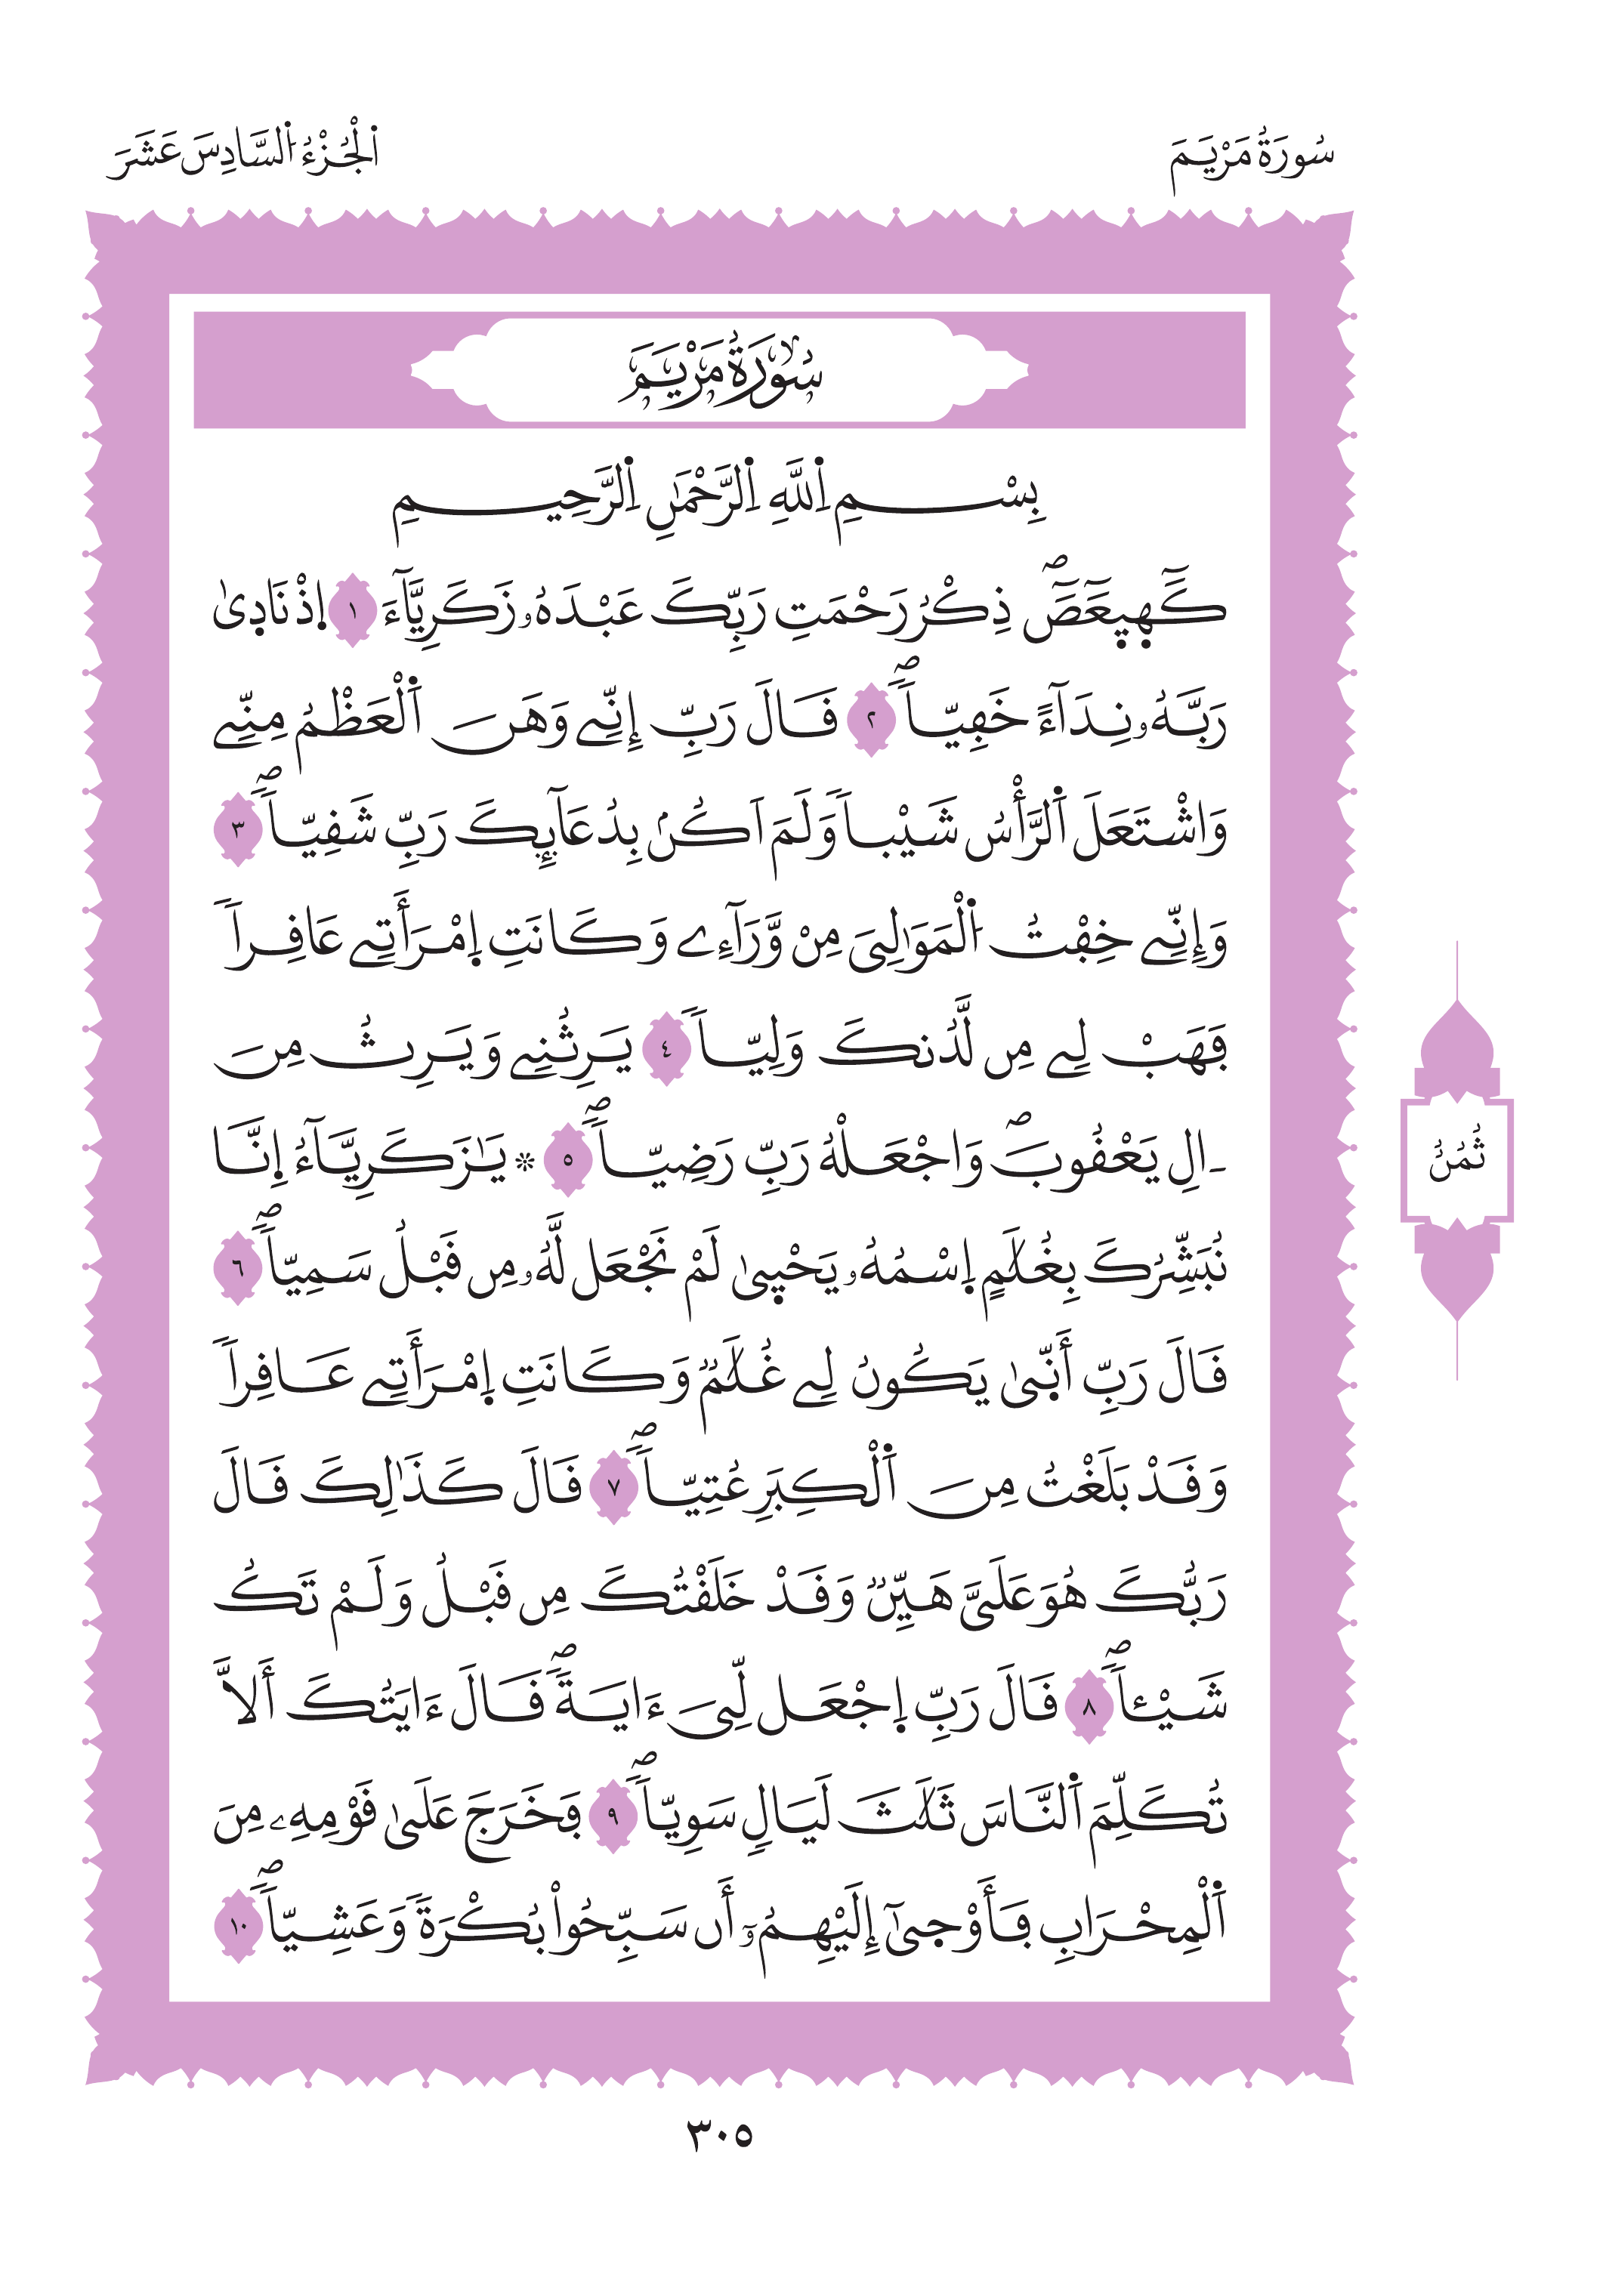 سُورَةُ مَرْيَمَ
اَ۬لْجُزْءُ اُ۬لسَّادِسَ عَشَرَ
سُورَةُ مَرْيَمَ
بِسْمِ اِ۬للَّهِ اِ۬لرَّحْمَٰنِ اِ۬لرَّحِيمِ
كَٓهيعَٓصَٓۖ ذِكْرُ رَحْمَتِ رَبِّكَ عَبْدَهُۥ زَكَرِيَّآءَ ١ اِذْ نَادِىٰ
رَبَّهُۥ نِدَآءً خَفِيّاٗۖ ٢ قَالَ رَبِّ إِنِّے وَهَنَ اَ۬لْعَظْمُ مِنِّے
وَاشْتَعَلَ اَ۬لرَّأْسُ شَيْباٗ وَلَمَ اَكُنۢ بِدُعَآئِكَ رَبِّ شَقِيّاٗۖ ٣
وَإِنِّے خِفْتُ اُ۬لْمَوَٰلِيَ مِنْ وَّرَآءِے وَكَانَتِ اِ۪مْرَأَتِے عَاقِراٗ
فَهَبْ لِے مِن لَّدُنكَ وَلِيّاٗ ٤ يَرِثُنِے وَيَرِثُ مِنَ
ءَالِ يَعْقُوبَۖ وَاجْعَلْهُ رَبِّ رَضِيّاٗۖ ٥ ۞ يَٰزَكَرِيَّآءُ إِنَّا
نُبَشِّرُكَ بِغُلَٰمٍ اِ۪سْمُهُۥ يَحْيِىٰ لَمْ نَجْعَل لَّهُۥ مِن قَبْلُ سَمِيّاٗۖ ٦
قَالَ رَبِّ أَنِّىٰ يَكُونُ لِے غُلَٰمٞ وَكَانَتِ اِ۪مْرَأَتِے عَاقِراٗ
وَقَدْ بَلَغْتُ مِنَ اَ۬لْكِبَرِ عُتِيّاٗۖ ٧ قَالَ كَذَٰلِكَ قَالَ
رَبُّكَ هُوَ عَلَيَّ هَيِّنٞ وَقَدْ خَلَقْتُكَ مِن قَبْلُ وَلَمْ تَكُ
شَيْـٔاٗۖ ٨ قَالَ رَبِّ اِ۪جْعَل لِّيَ ءَايَةٗۖ قَالَ ءَايَتُكَ أَلَّا
تُكَلِّمَ اَ۬لنَّاسَ ثَلَٰثَ لَيَالٖ سَوِيّاٗۖ ٩ فَخَرَجَ عَلَىٰ قَوْمِهِۦ مِنَ
اَ۬لْمِحْرَابِ فَأَوْحِىٰٓ إِلَيْهِمُۥٓ أَن سَبِّحُواْ بُكْرَةٗ وَعَشِيّاٗۖ ١٠
ثُمُنُ
٣٠٥